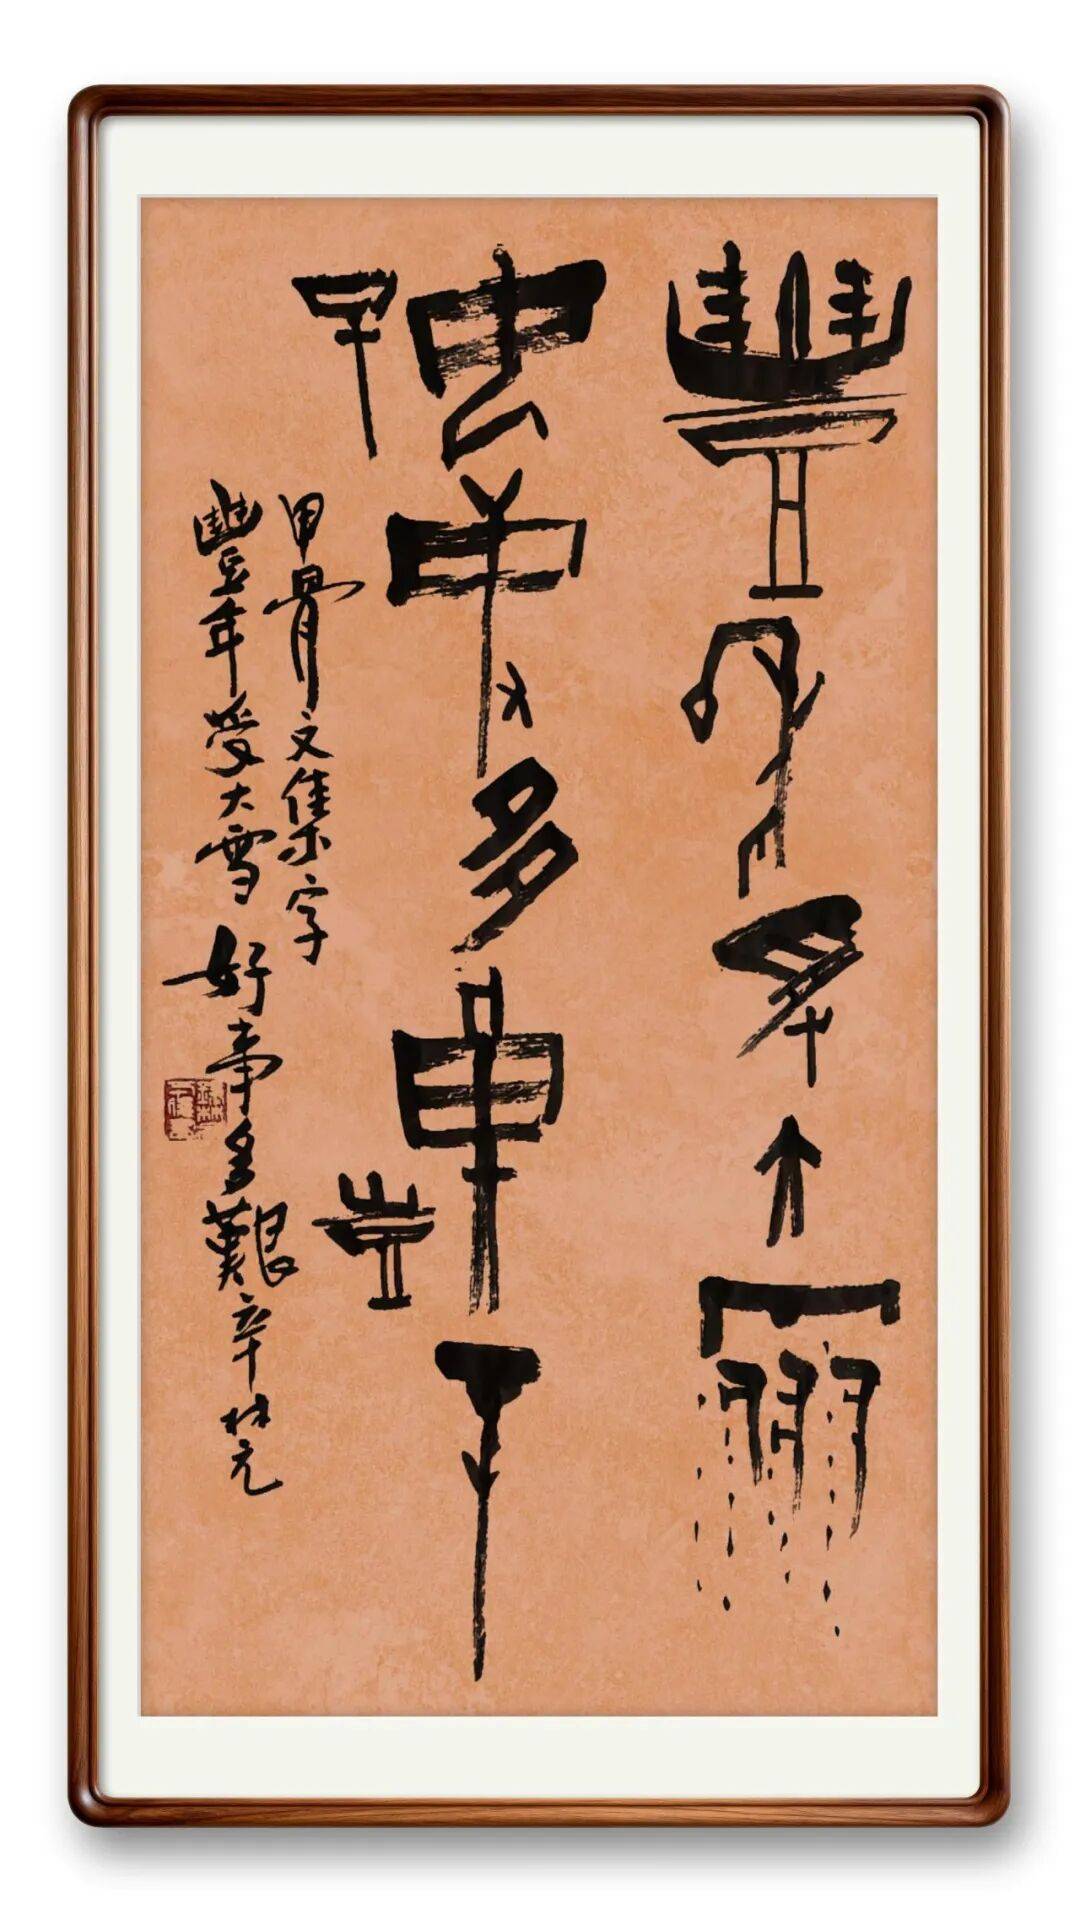 豐年受大雪
好事多艱辛
甲骨文集字
豐年受大雪好事多艱辛林元